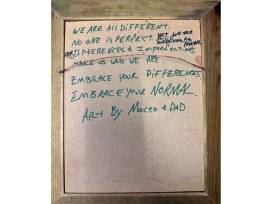 WE ARE All DIFFERENT.
NO ONE IS PERFECT. YET, WE ARE
DIFFERENCES & IMPERFECTIONS
MAKE US WHO WE ARE
EMBRACE YOUR DIFFERENCES.
EMBRACE YOUR NORMAL.
ART BY MACEO & DAD